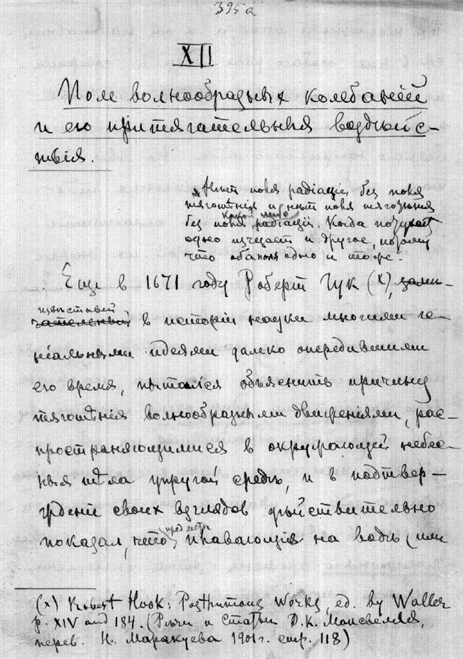 395а
XII
Поле волнообразных колебаній
и его притягательныя воздѣйс-
твія.
Нѣтъ поля радіаціи безъ поля
тяготѣнія и нѣтъ поля тяготѣнія
безъ поля радіаціи. Когда потухаетъ
одно исчезаетъ и другое, потому
что оба поля одно и тоже.
Еще в 1671 году Роберт Гук (x),
извѣстный
в исторіи науки многими ге-
ніальными идеями далеко опередившими
его время, пытался объяснить причину
тяготѣнія волнообразными движеніями, рас-
пространяющимися в окружающей небес-
ныя тѣла упругой средѣ, и в подтвер-
жденіе своих взглядов дѣйствительно
показал, что предметы плавающіе на водѣ (или
(x) Robert Hook. Posthumous Works, ed. by Waller
p. XIV and 184. (Рѣчи и Статьи Д. К. Максвелля,
перев. Н. Маракуева 1901 г. стр. 118)